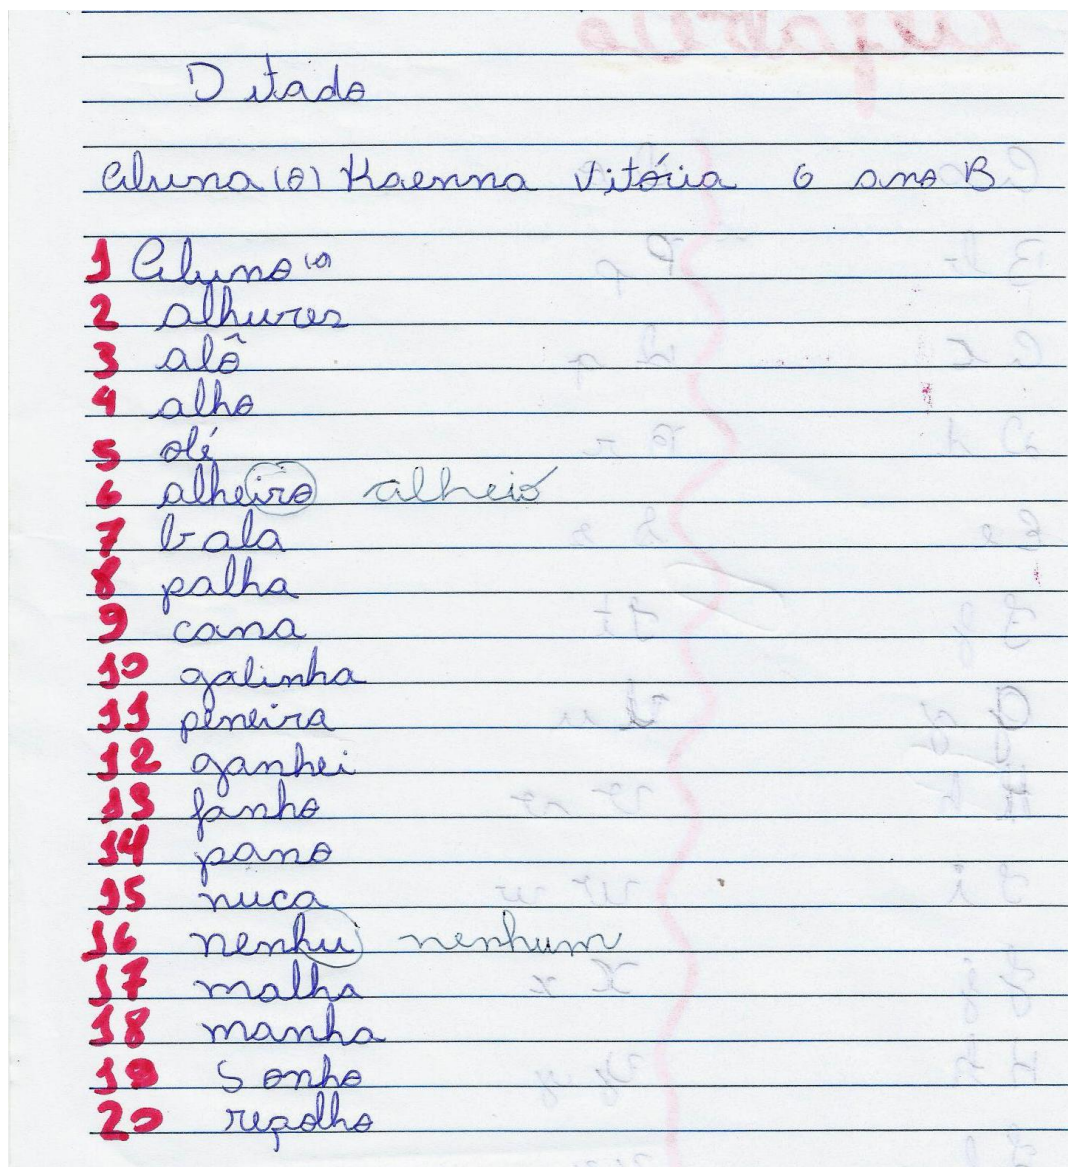 Ditado
Aluna(o) Kaenna Vitória 6 ano B
1 Aluno(a)
2 alhures
3 alô
4 alho
5 olé
6 alheiro alheio
7 bala
8 palha
9 cana
10 galinha
11 peneira
12 ganhei
13 fanho
14 pano
15 nuca
16 nenhu nenhum
17 malha
18 manha
19 Sonho
20 repolho